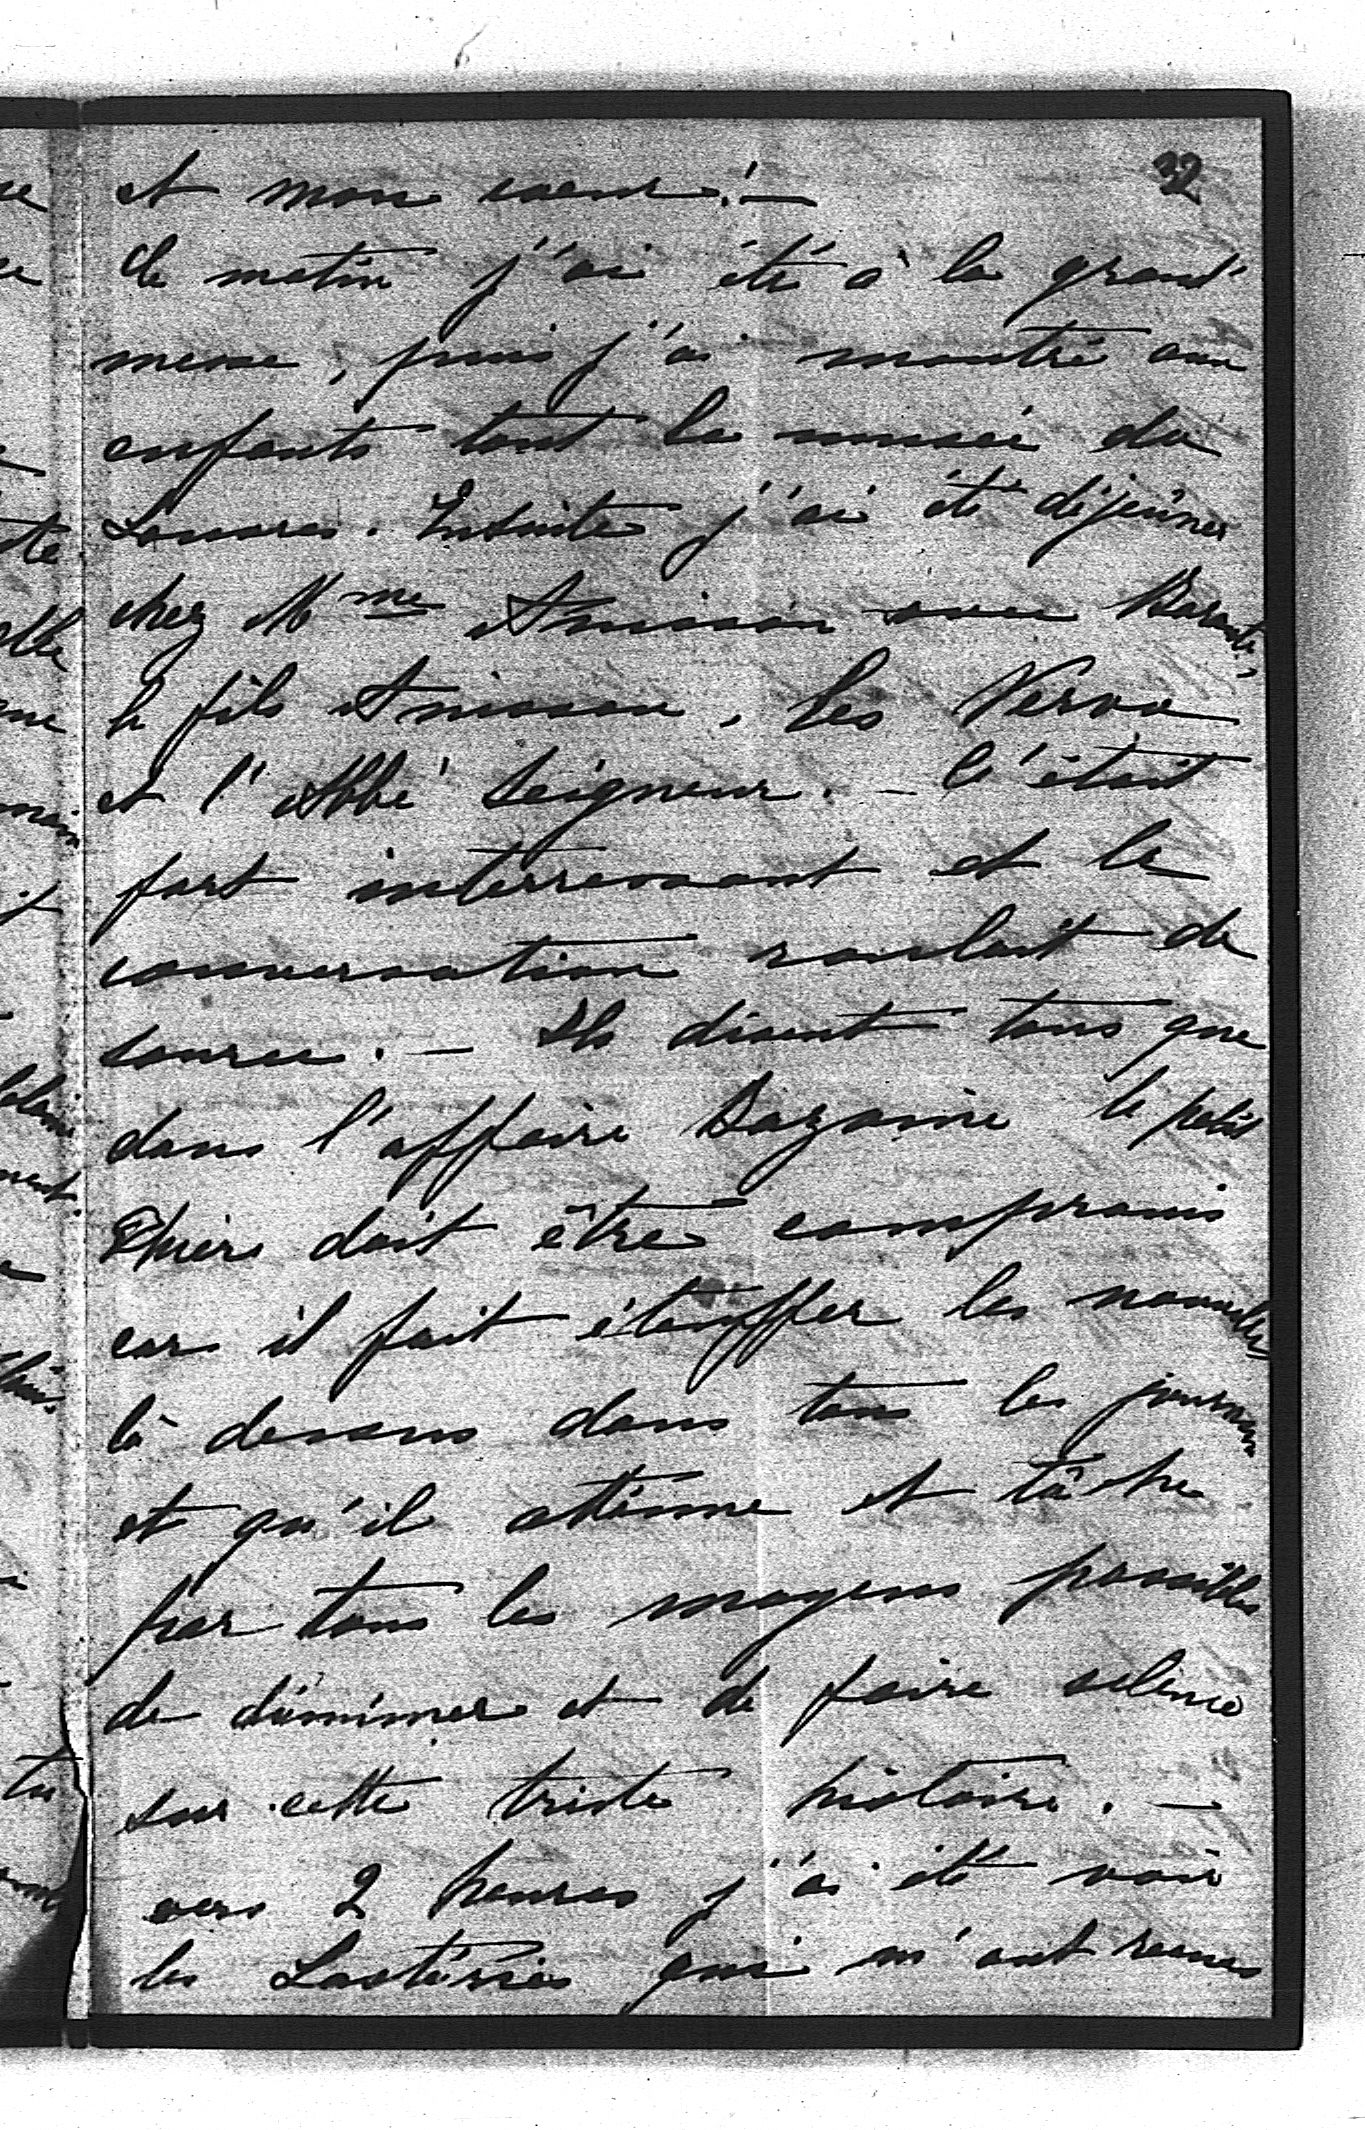 32
et mon coeur! —
Ce matin j'ai été à la grand'
messe, puis j'ai montré aux
enfants tout le musée du
Louvres. Ensuite j'ai été déjeûner
chez Mme Anisson avec Barante,
le fils Anisson, les
et l'Abbé Seigneur. — C'était
fort interressant et la
conversation roulait de
source. — Ils disent tous que
dans l'affaire Bazaine le petit
Thiers doit être compromis
car il fait étouffer les nouvelles
là dessus dans tous les journaux
et qu'il atténue et tâche
par tous les moyens possibles
de et de faire silence
sur cette triste histoire. —
vers 2 heures j'ai été voir
les qui m'ont reçues